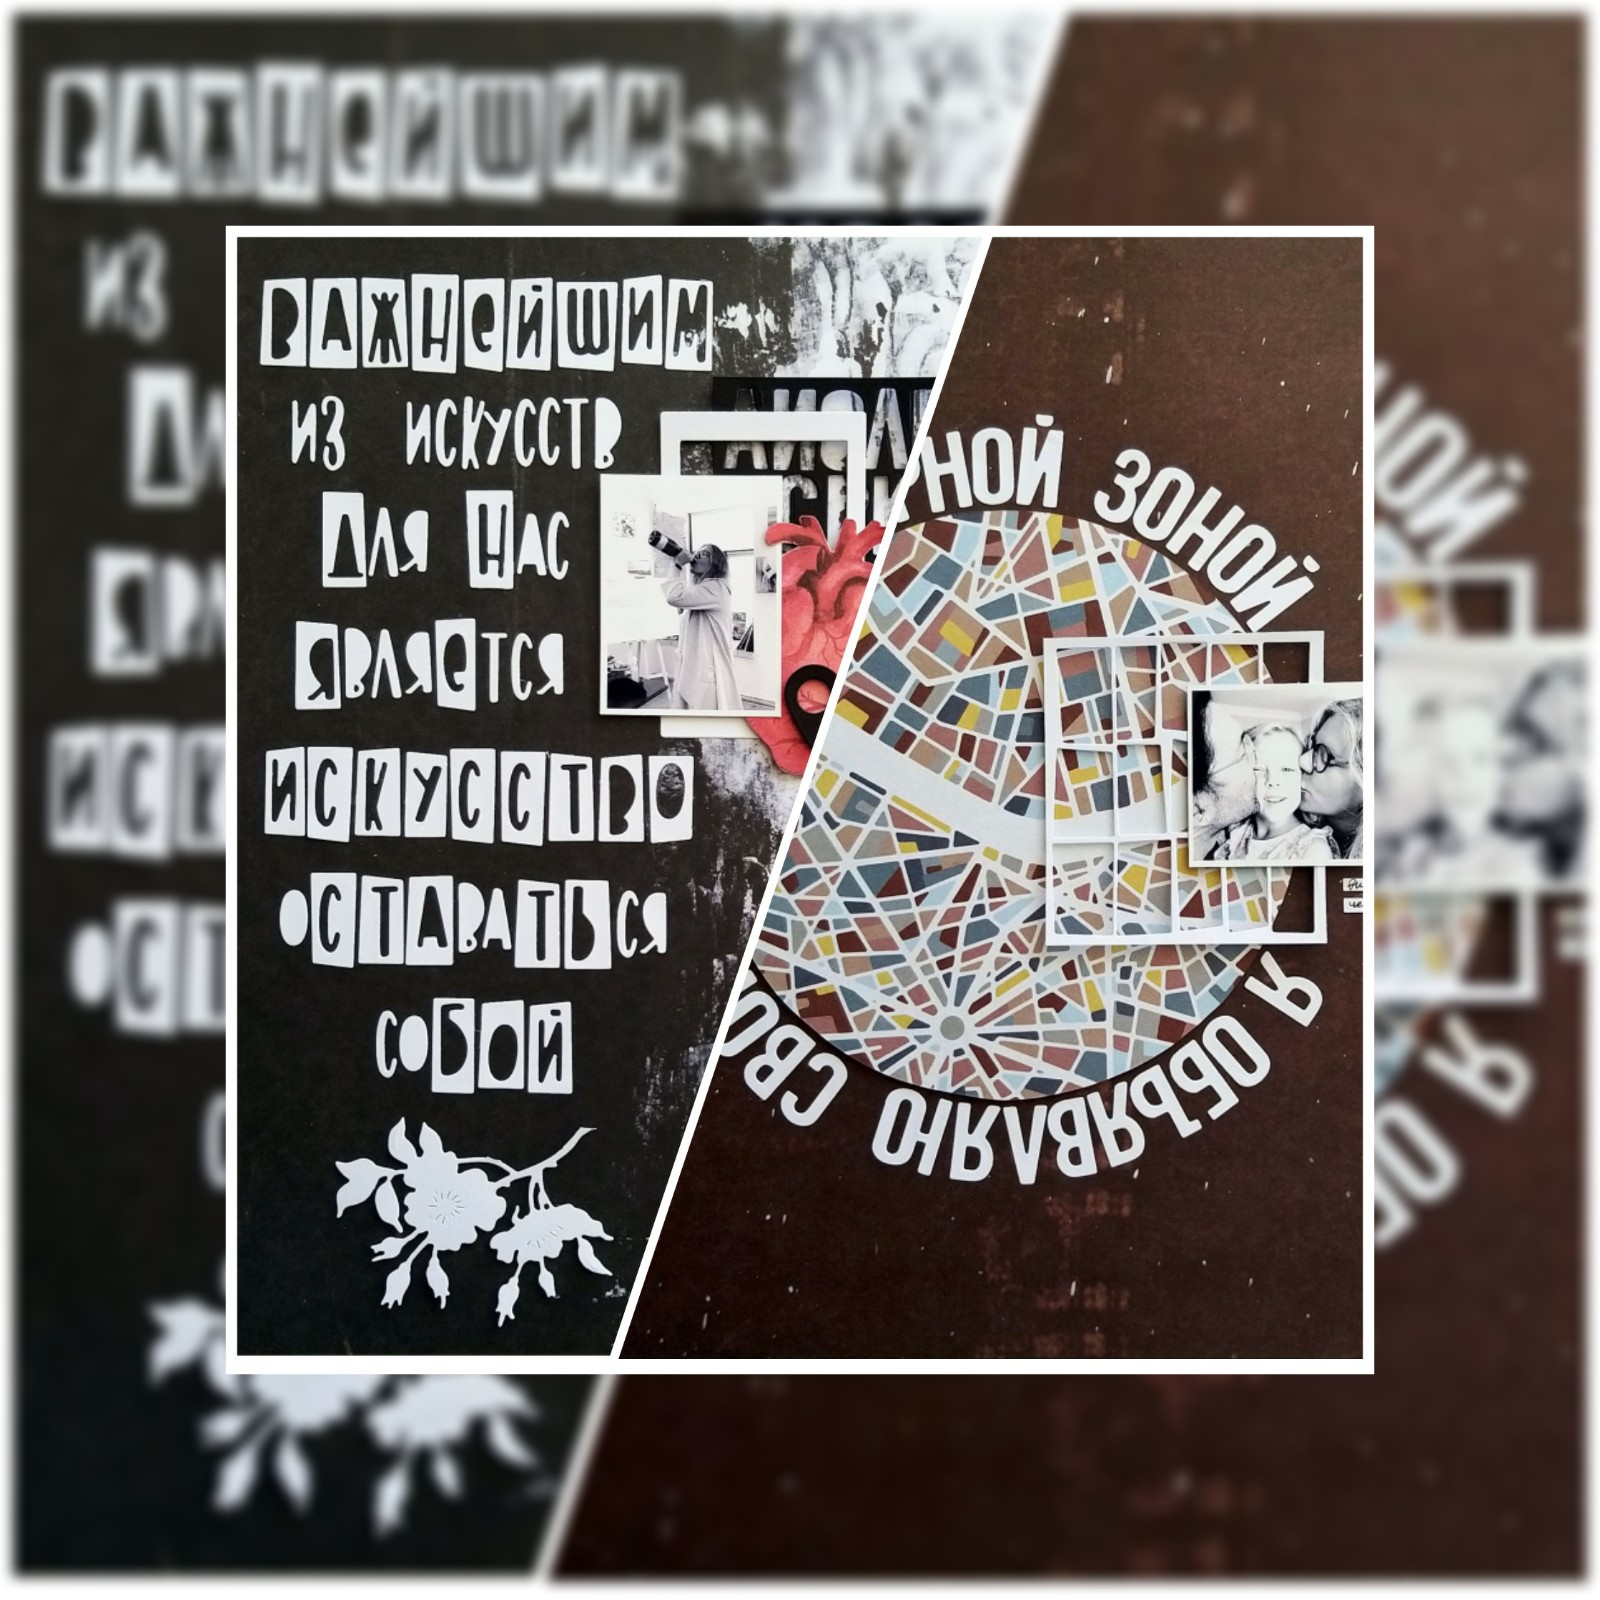 ВАЖНЕЙШИМ
ИЗ ИСКУССТВ
ДЛЯ НАС
ЯВЛЯЕТСЯ
ИСКУССТВО
ОСТАВАТЬСЯ
СОБОЙ
ЗОНОЙ
Я ОБЪЯВЛЯЮ